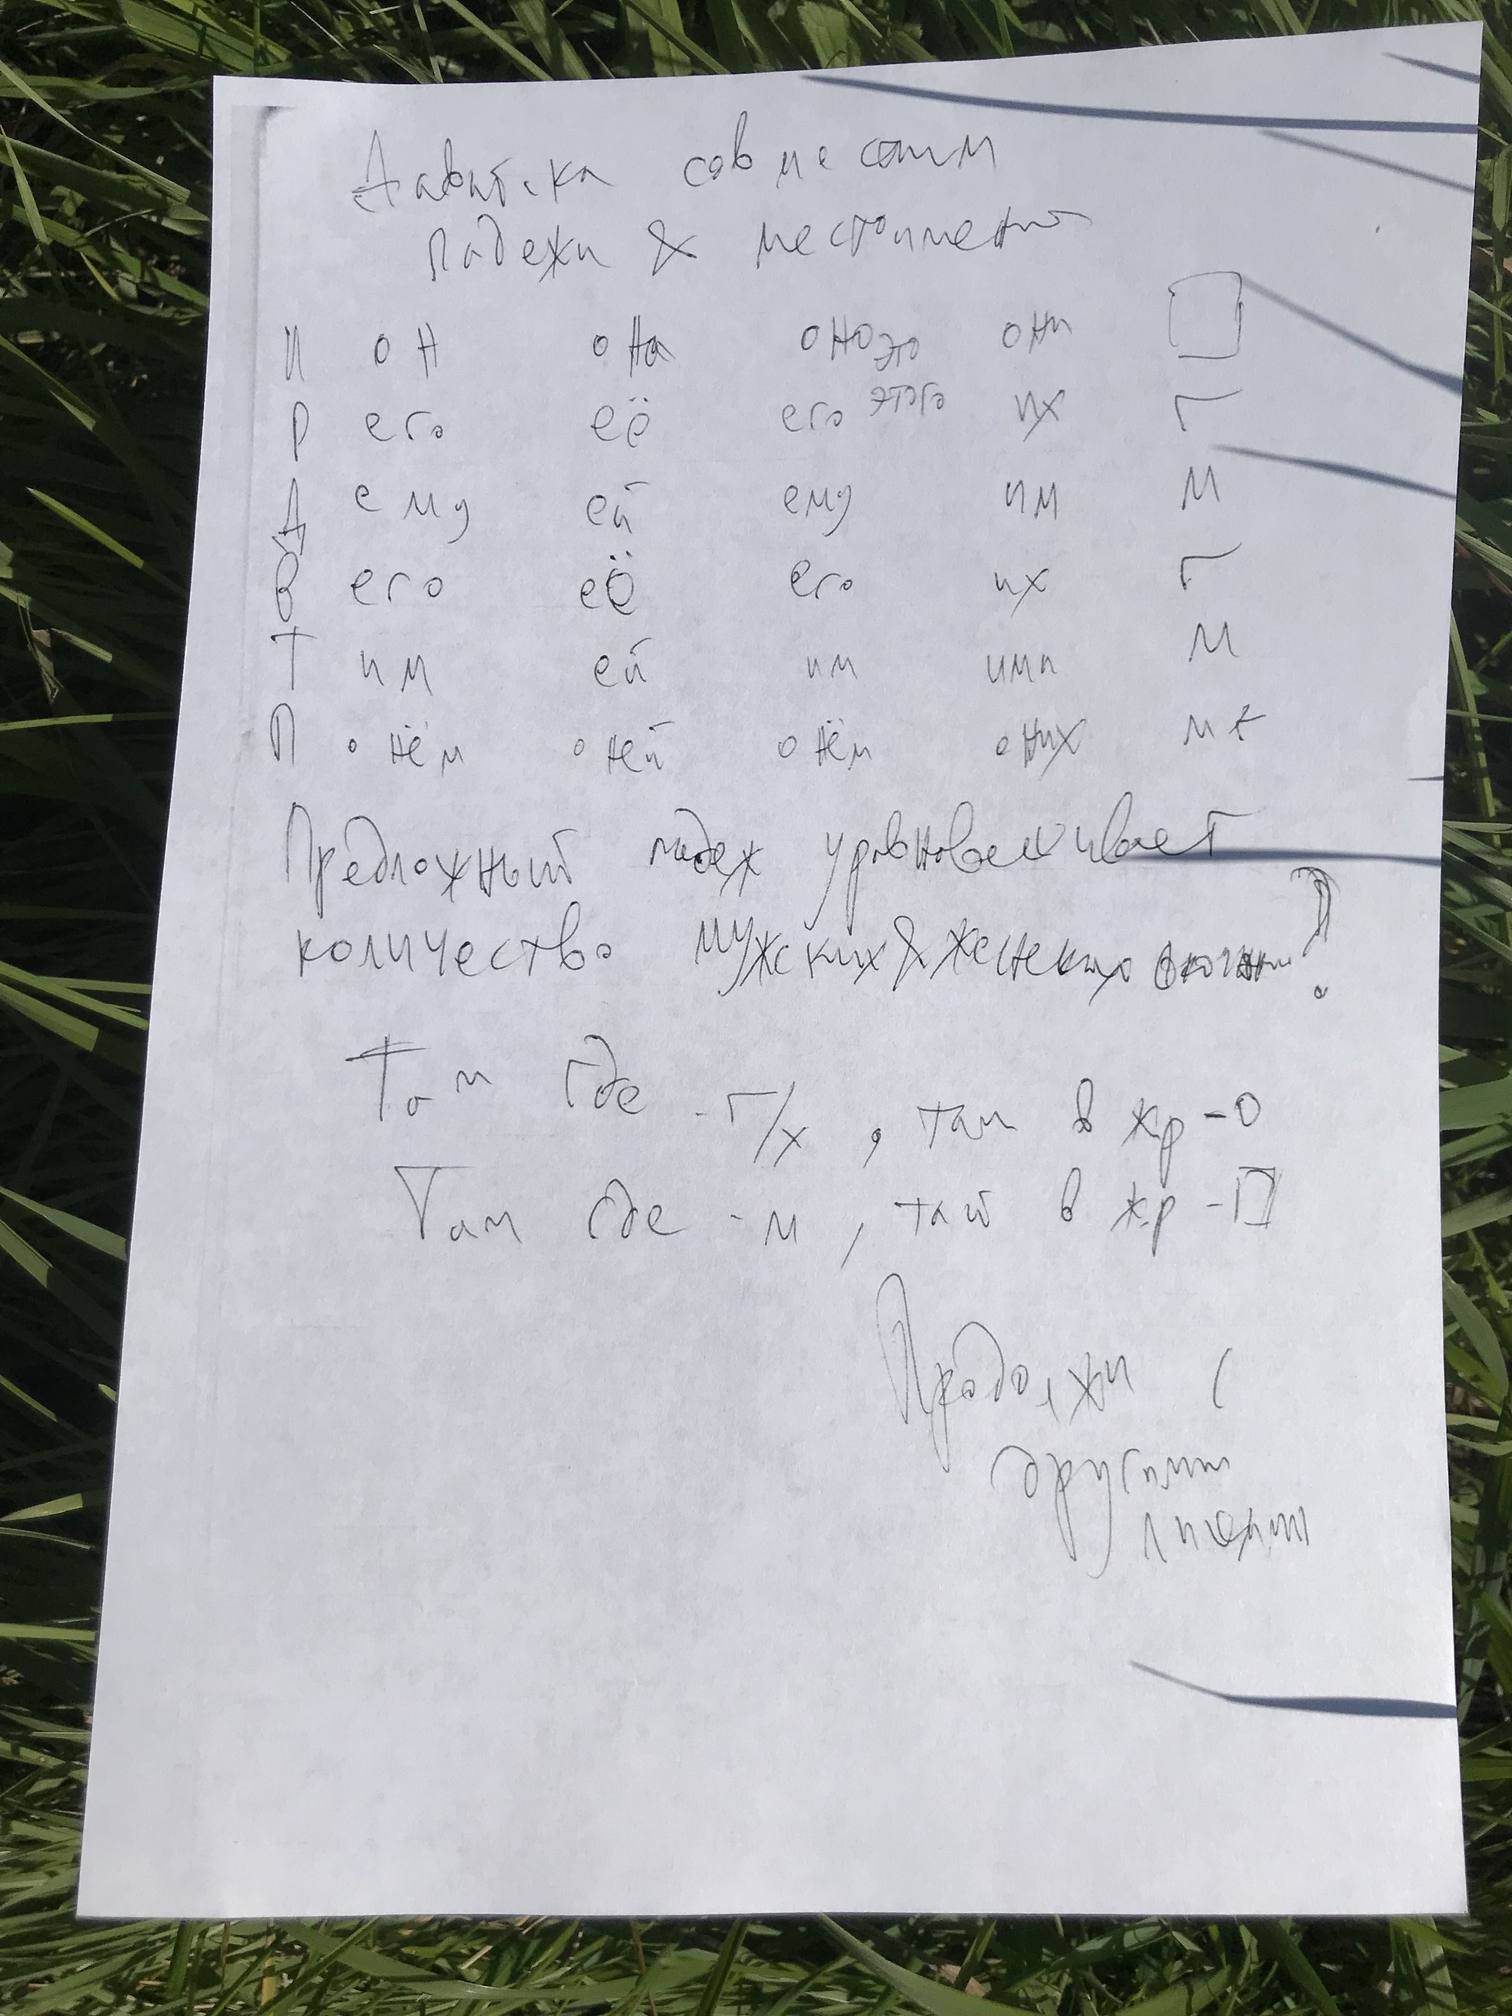 Давайтека совместим
падежи & местоимения
И он она оно это они □
Р его её его этого их г
Д ему ей ему им м
В его её его их г
Т им ей им ими м
П о нём о ней о нём о них м
Предложный падеж уравновешивает
количество мужских & женских ?
Там где -г/х, там в жр -О
Там где -м, там в жр -П
Продолжи с
другими
лицами